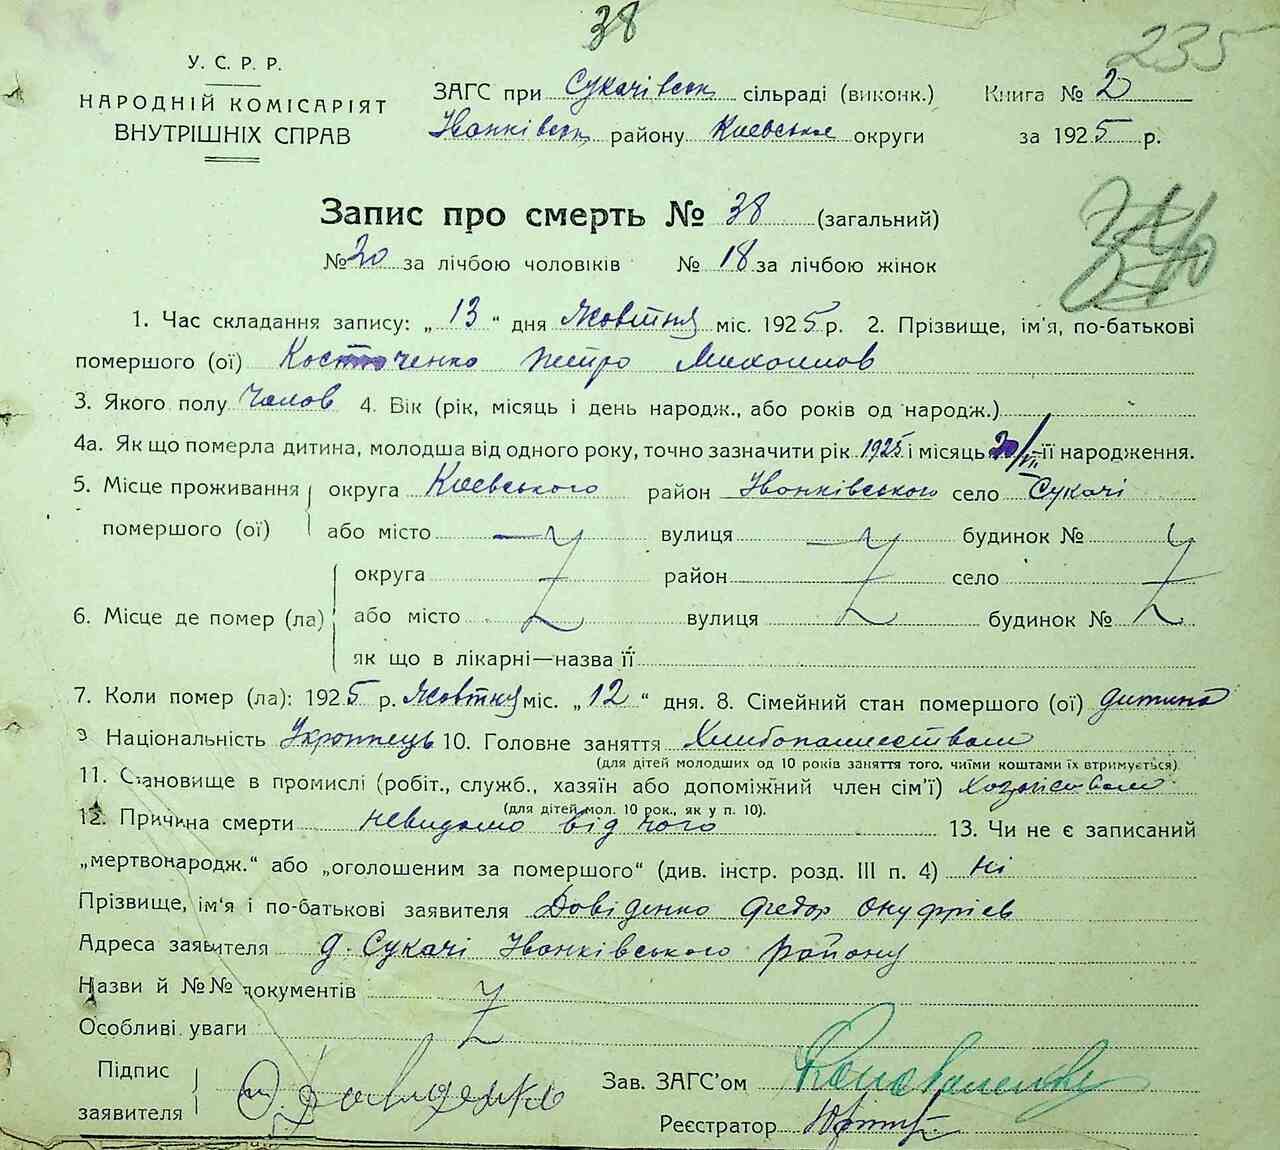 38
235
У. С. Р. Р.
НАРОДНІЙ КОМІСАРІЯТ
ВНУТРІШНІХ СПРАВ
ЗАГС при Сукачівськ сільраді (виконк.) Книга № 2
Іванківськ району Киевське округи за 1925 р.
Запис про смерть № 38 (загальний)
№ 20 за лічбою чоловіків № 18 за лічбою жінок
1. Час складання запису: „ 13 “ дня Жовтня міс. 1925 р. 2. Прізвище, ім'я, по-батькові
помершого (ої) Петро Михоилов
3. Якого полу Чолов 4. Вік (рік, місяць і день народж., або років од народж.)
4а. Як що померла дитина, молодша від одного року, точно зазначити рік 1925 і місяць її народження.
5. Місце проживання округа Киевського район Іванківського село Сукачі
помершого (ої) або місто вулиця будинок №
округа район село
6. Місце де помер (ла) або місто вулиця будинок №
як що в лікарні—назва її
7. Коли помер (ла): 1925 р. Жовтня міс. „ 12 “ дня. 8. Сімейний стан помершого (ої) дитина
9 Національність Українець 10. Головне заняття Хлибопашеством
(для дітей молодших од 10 років заняття того, чиїми коштами їх втримується)
11. Становище в промислі (робіт., служб., хазяїн або допоміжний член сім'ї) хозяіством
(для дітей мол. 10 рок., як у п. 10).
12. Причина смерти невидомо від чого 13. Чи не є записаний
„мертвонародж.“ або „оголошеним за помершого“ (див. інстр. розд. III п. 4) Ні
Прізвище, ім'я і по-батькові заявителя Довіденко Федор Онуфріев
Адреса заявителя д. Сукачі Іванківського району
Назви й №№ документів
Особливі уваги
Підпис
заявителя
Зав. ЗАГС'ом Коноваленко
Реєстратор